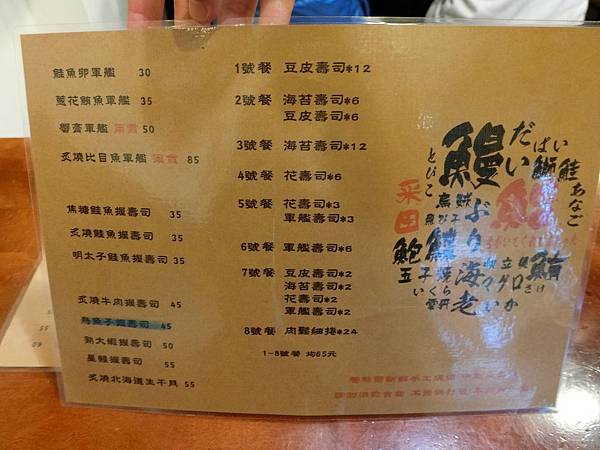 鮭魚卵軍艦 30
蔥花鮪魚軍艦 35
蟹膏軍艦 兩貫 50
炙燒比目魚軍艦 兩貫 85
焦糖鮭魚握壽司 35
炙燒鮭魚握壽司 35
明太子鮭魚握壽司 35
炙燒牛肉握壽司 45
烏魚子握壽司 45
熟大蝦握壽司 50
星鰻握壽司 55
炙燒北海道生干貝 55
1號餐 豆皮壽司*12
2號餐 海苔壽司*6
豆皮壽司*6
3號餐 海苔壽司*12
4號餐 花壽司*6
5號餐 花壽司*3
軍艦壽司*3
6號餐 軍艦壽司*6
7號餐 豆皮壽司*2
海苔壽司*2
花壽司*2
軍艦壽司*2
8號餐 肉鬆細捲*24
1-8號餐 均65元
鰻
だい
ぱい
とびこ
鮭
あなご
采田
ぶり
鮑
海老
マグロ
鮪
いくら
いか
さけ
55
55
60